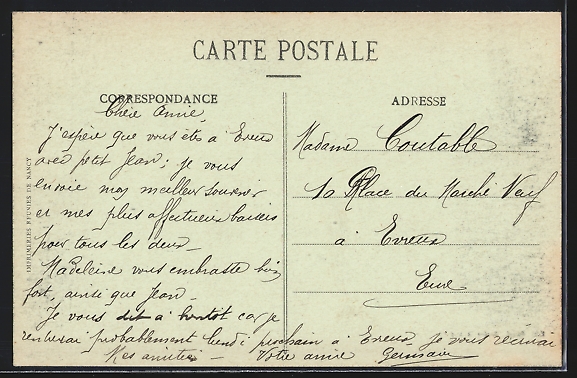 CARTE POSTALE
CORRESPONDANCE
Chère Amie,
J'espère que vous êtes à Evreux
avec petit Jean; je vous
envoie mes meilleurs souvenirs
et mes plus affectueux baisers
pour tous les deux_
Madeleine vous embrasse bien
fort, ainsi que Jean_
Je vous dit à bientôt car je
rentrerai probablement lundi prochain à Evreux je vous
Mes amitiés_ Votre amie Germaine
ADRESSE
Madame Coutable
10 Place du Marché Neuf
à Evreux
Eure
IMPRIMERIES RÉUNIES DE NANCY